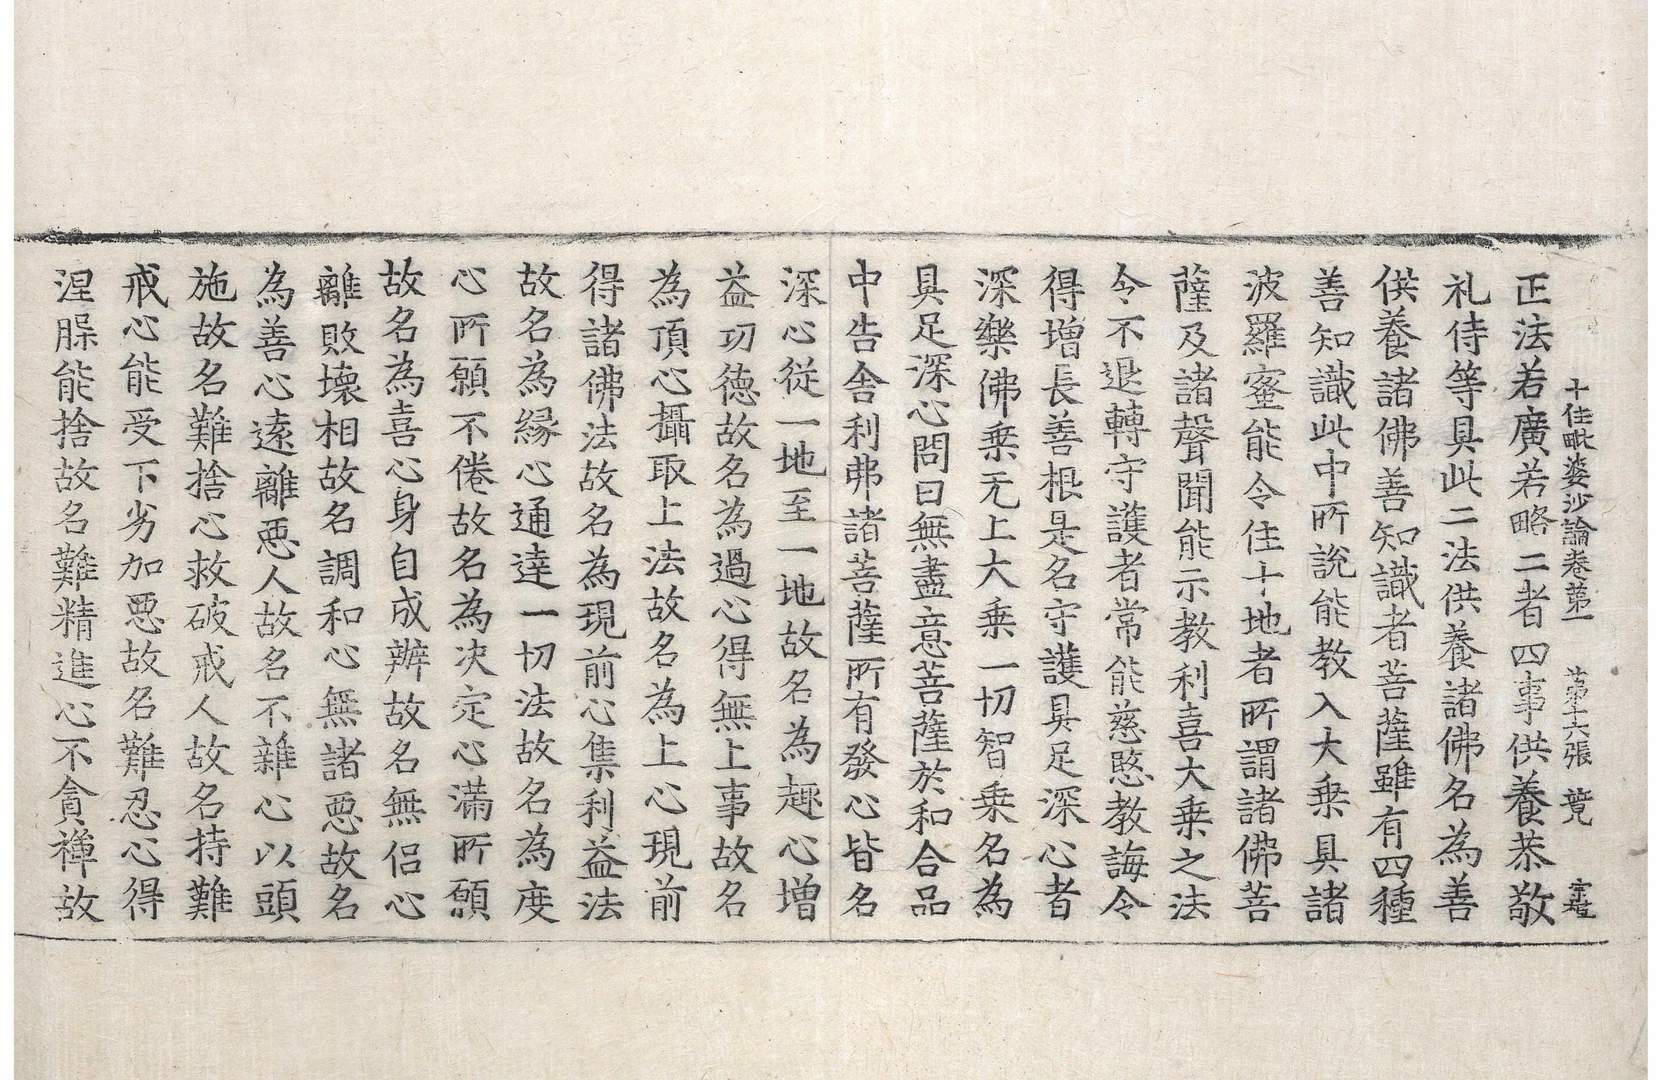 十住毗婆沙論卷第一 第十六張 竟
正法若廣若略二者四事供養恭敬
礼侍等具此二法供養諸佛名為善
供養諸佛善知識者菩薩雖有四種
善知識此中所說能教入大乗具諸
波羅蜜能令住十地者所謂諸佛菩
薩及諸聲聞能示教利喜大乗之法
令不退轉守護者常能慈愍教誨令
得增長善根是名守護具足深心者
深樂佛乗无上大乗一切智乗名為
具足深心問曰無盡意菩薩於和合品
中告舍利弗諸菩薩所有發心皆名
深心從一地至一地故名為趣心增
益功德故名為過心得無上事故名
為頂心攝取上法故名為上心現前
得諸佛法故名為現前心集利益法
故名為縁心通達一切法故名為度
心所願不倦故名為決定心滿所願
故名為喜心身自成辦故名無侣心
離敗壞相故名調和心無諸惡故名
為善心遠離惡人故名不雜心以頭
施故名難捨心救破戒人故名持難
戒心能受下劣加惡故名難忍心得
涅槃能捨故名難精進心不貪禅故